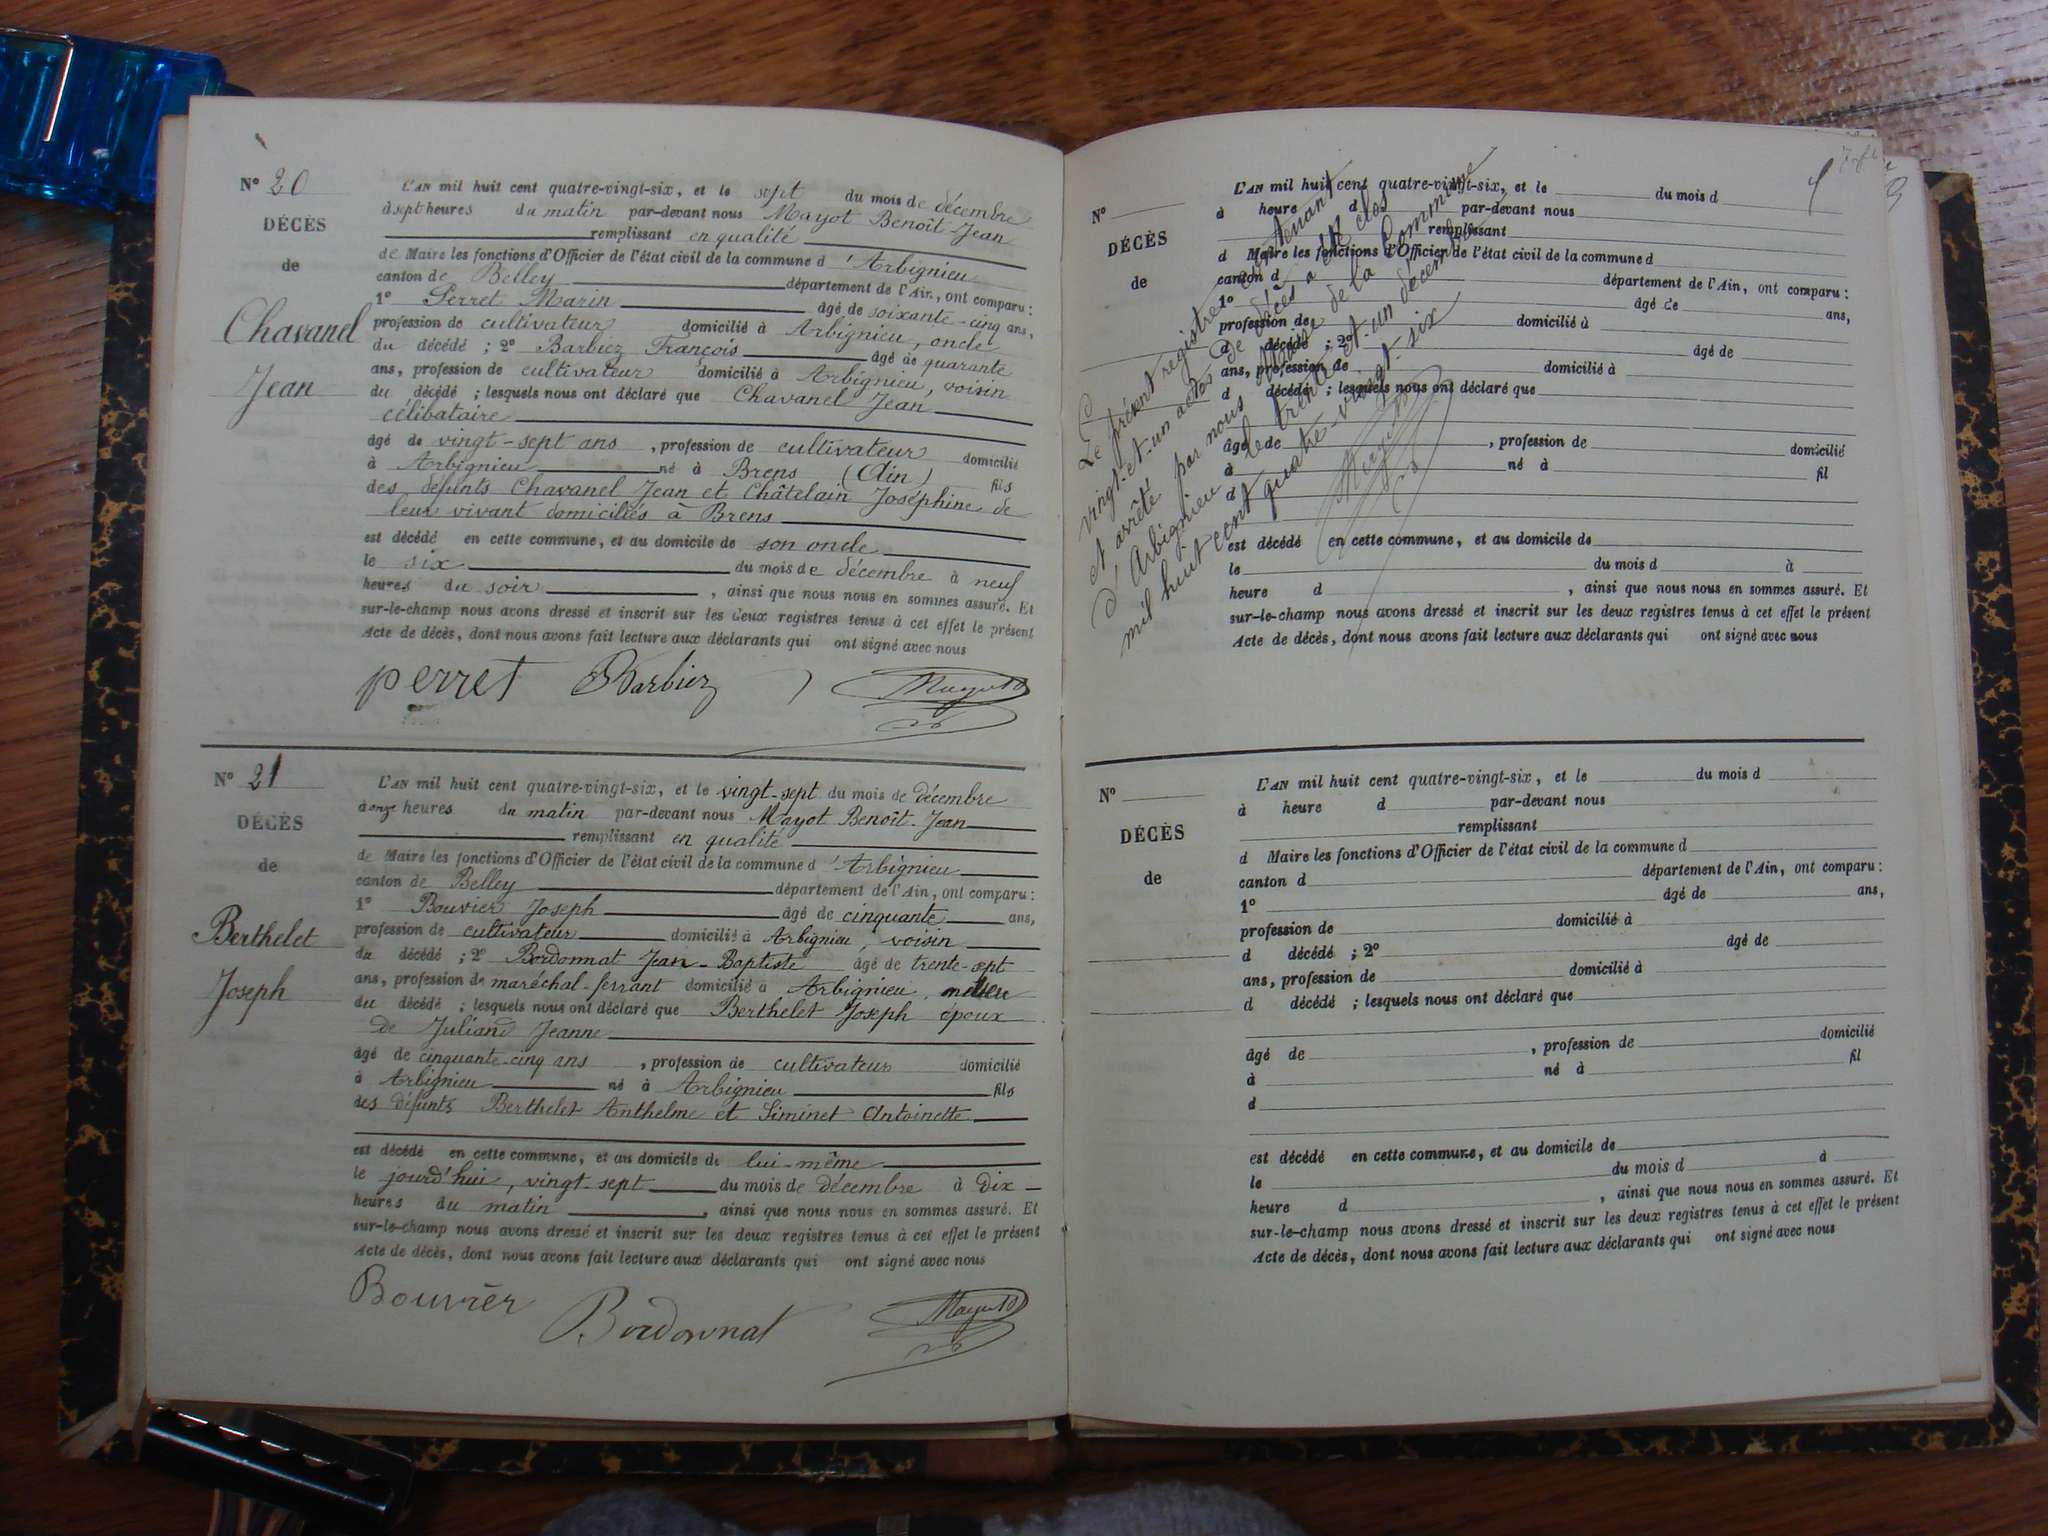 N° 20
DÉCÈS
de
Chavanel
Jean
L'AN mil huit cent quatre-vingt-six, et le sept du mois de décembre
à sept heures du matin par-devant nous Mayot Benoît Jean
remplissant en qualité
de Maire les fonctions d'Officier de l'état civil de la commune d'Arbignieu
canton de Belley département de l'Ain, ont comparu :
1° Perret Marin âgé de soixante-cinq ans,
profession de cultivateur domicilié à Arbignieu, oncle
du décédé ; 2° Barbiez François âgé de quarante
ans, profession de cultivateur domicilié à Arbignieu, voisin
du décédé ; lesquels nous ont déclaré que Chavanel Jean
célibataire
âgé de vingt-sept ans, profession de cultivateur domicilié
à Arbignieu né à Brens (Ain) fils
des défunts Chavanel Jean et Châtelain Joséphine de
leur vivant domiciliés à Brens
est décédé en cette commune, et au domicile de son oncle
le six du mois de décembre à neuf
heures du soir, ainsi que nous nous en sommes assuré. Et
sur-le-champ nous avons dressé et inscrit sur les deux registres tenus à cet effet le présent
Acte de décès, dont nous avons fait lecture aux déclarants qui ont signé avec nous
perret Barbiez Mayot B
N° 21
DÉCÈS
de
Berthelet
Joseph
L'AN mil huit cent quatre-vingt-six, et le vingt-sept du mois de décembre
à onze heures du matin par-devant nous Mayot Benoît-Jean
remplissant en qualité
de Maire les fonctions d'Officier de l'état civil de la commune d'Arbignieu
canton de Belley département de l'Ain, ont comparu :
1° Bouvier Joseph âgé de cinquante ans,
profession de cultivateur domicilié à Arbignieu, voisin
du décédé ; 2° Bordonnat Jean-Baptiste âgé de trente-sept
ans, profession de maréchal-ferrant domicilié à Arbignieu
du décédé ; lesquels nous ont déclaré que Berthelet Joseph époux
de Juliand Jeanne
âgé de cinquante-cinq ans, profession de cultivateur domicilié
à Arbignieu né à Arbignieu fils
des défunts Berthelet Anthelme et Siminet Antoinette
est décédé en cette commune, et au domicile de lui-même
le jourd'hui, vingt-sept du mois de décembre à dix
heures du matin, ainsi que nous nous en sommes assuré. Et
sur-le-champ nous avons dressé et inscrit sur les deux registres tenus à cet effet le présent
Acte de décès, dont nous avons fait lecture aux déclarants qui ont signé avec nous
Bouvier Bordonnat Mayot B
N°
DÉCÈS
de
L'AN mil huit cent quatre-vingt-six, et le du mois d
à heure d par-devant nous
remplissant
d Maire les fonctions d'Officier de l'état civil de la commune d
canton d département de l'Ain, ont comparu :
1° âgé de ans,
profession de domicilié à
d décédé ; 2° âgé de
ans, profession de domicilié à
d décédé ; lesquels nous ont déclaré que
âgé de , profession de domicilié
à né à fil
d
est décédé en cette commune, et au domicile de
le du mois d à
heure d , ainsi que nous nous en sommes assuré. Et
sur-le-champ nous avons dressé et inscrit sur les deux registres tenus à cet effet le présent
Acte de décès, dont nous avons fait lecture aux déclarants qui ont signé avec nous
Le présent registre contenant
vingt-et-un actes de décès a été clos
et arrêté par nous Maire de la Commune
d'Arbignieu le trente-et-un décembre
mil huit cent quatre-vingt-six
Mayot B
N°
DÉCÈS
de
L'AN mil huit cent quatre-vingt-six, et le du mois d
à heure d par-devant nous
remplissant
d Maire les fonctions d'Officier de l'état civil de la commune d
canton d département de l'Ain, ont comparu :
1° âgé de ans,
profession de domicilié à
d décédé ; 2° âgé de
ans, profession de domicilié à
d décédé ; lesquels nous ont déclaré que
âgé de , profession de domicilié
à né à fil
d
est décédé en cette commune, et au domicile de
le du mois d à
heure d , ainsi que nous nous en sommes assuré. Et
sur-le-champ nous avons dressé et inscrit sur les deux registres tenus à cet effet le présent
Acte de décès, dont nous avons fait lecture aux déclarants qui ont signé avec nous